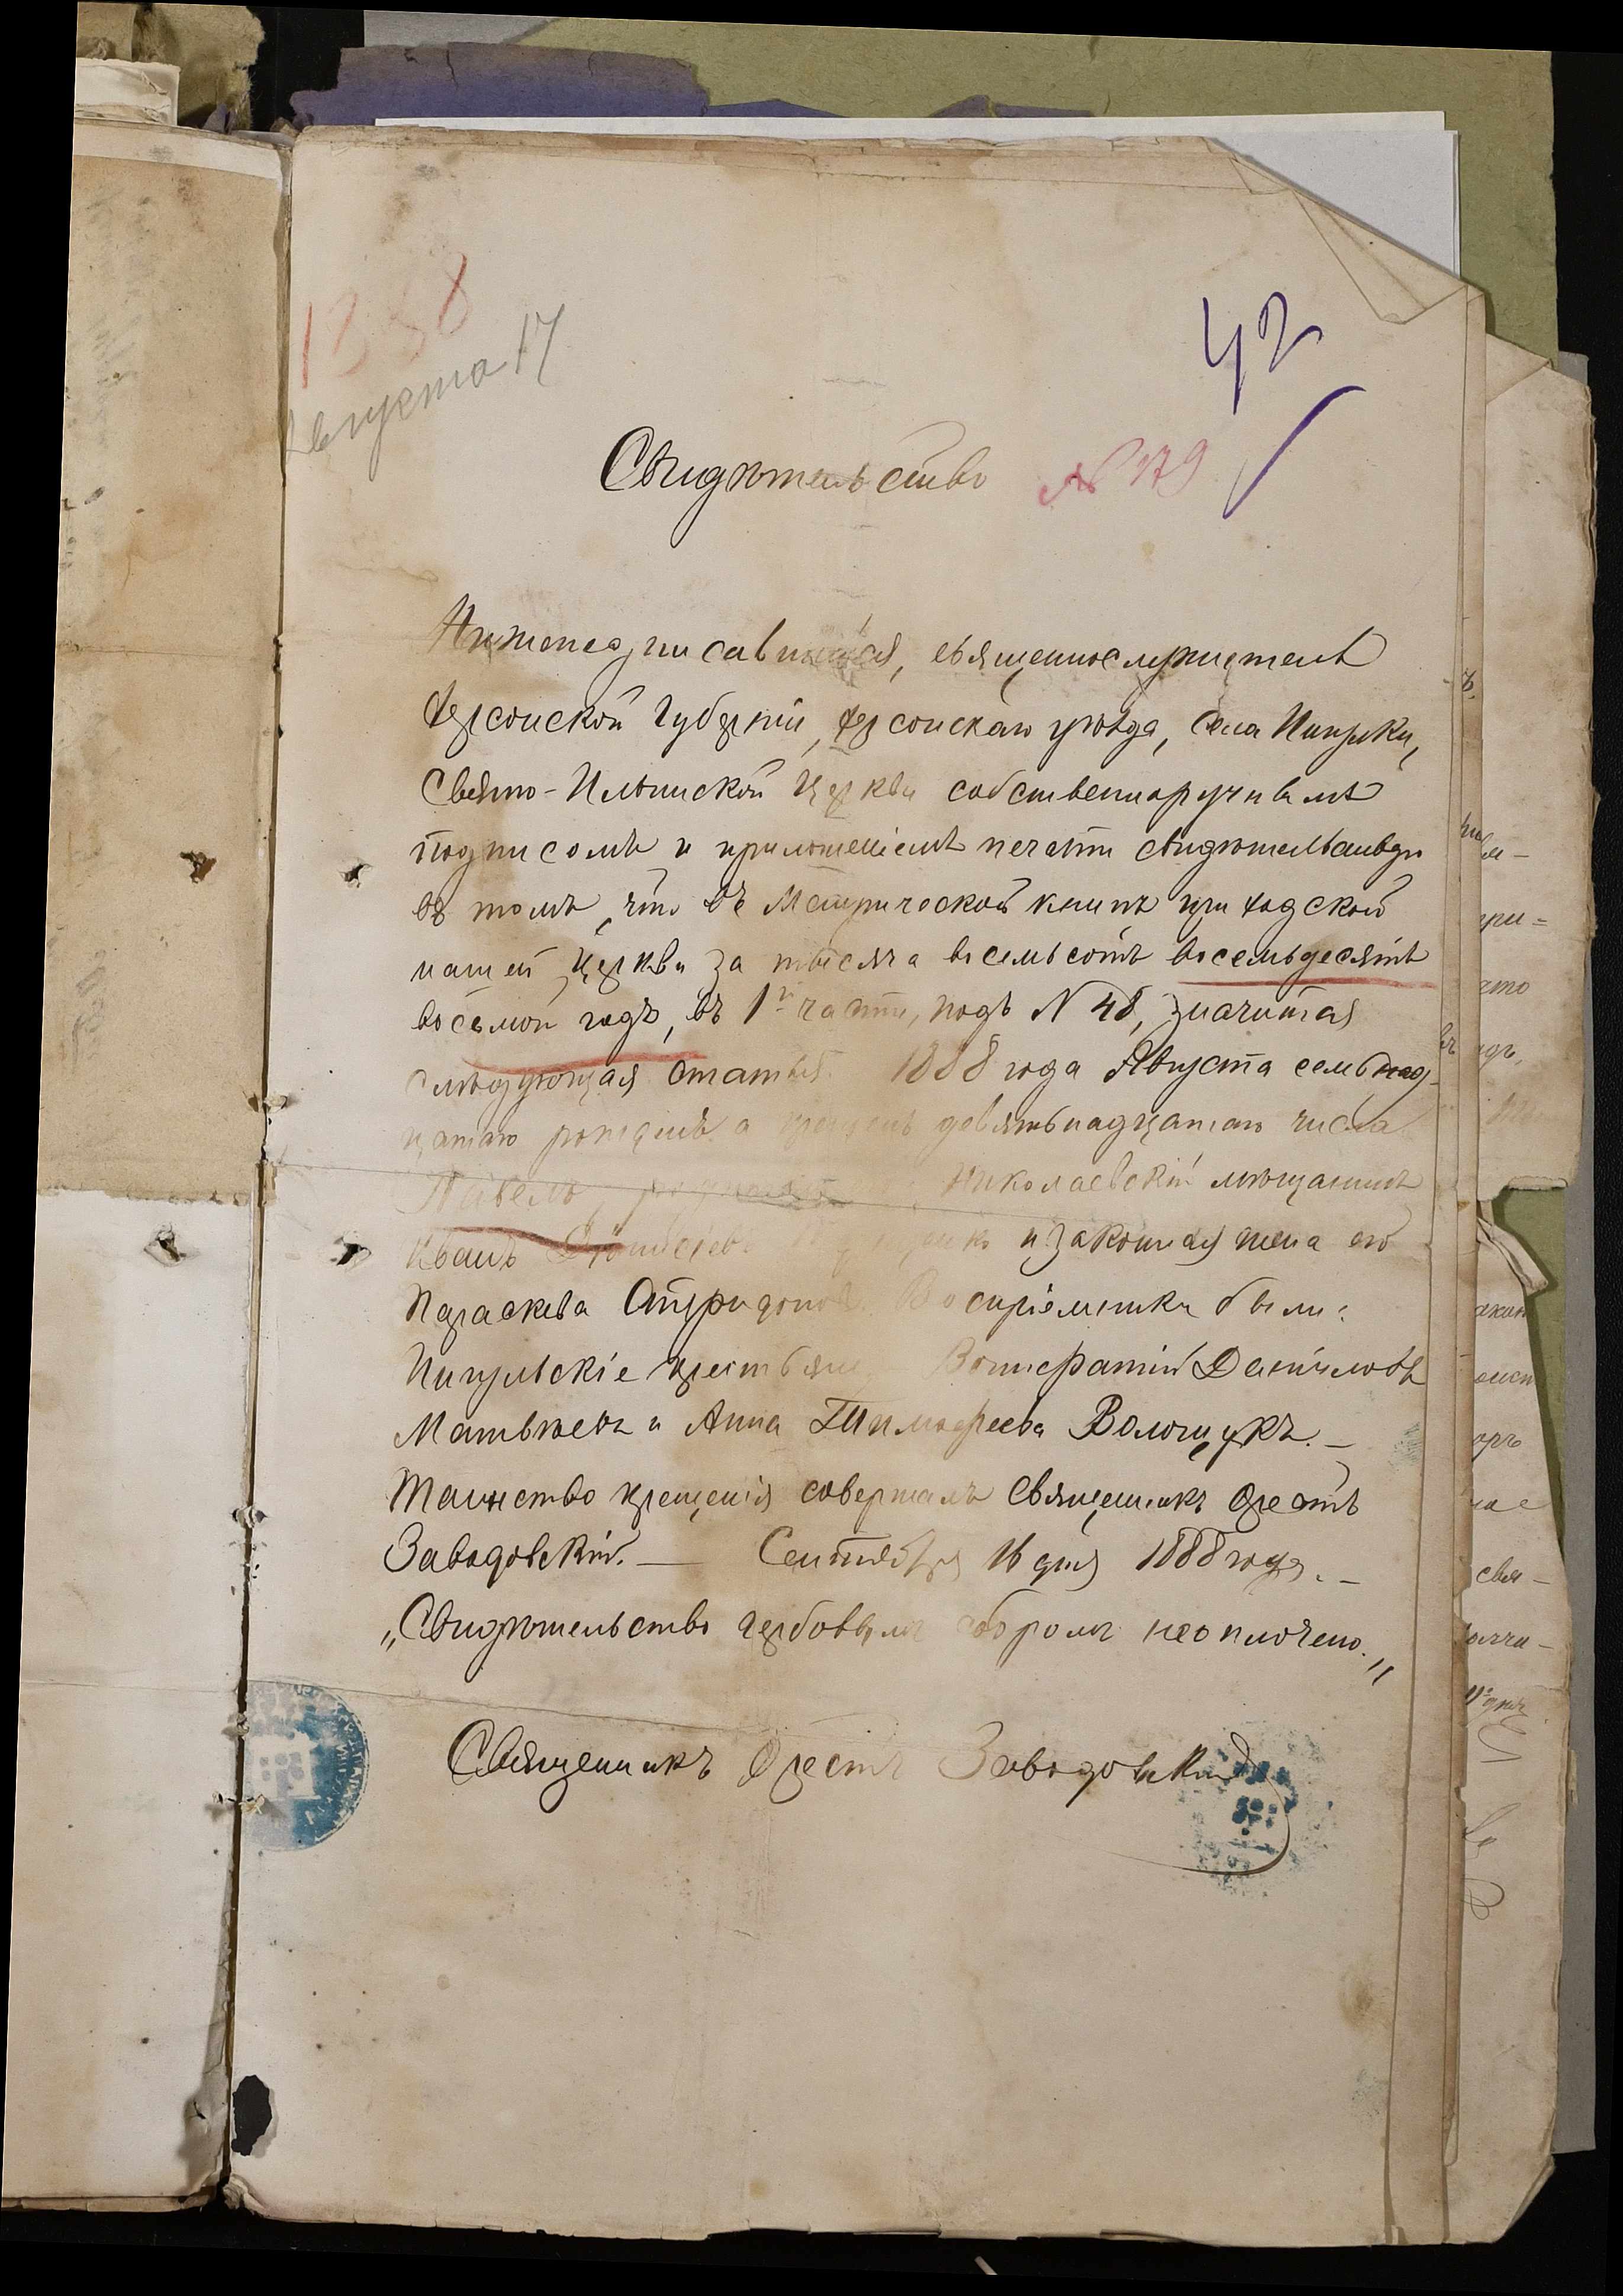 1888
Августа 17
42
Свидѣтельство № 179
Нижеподписавшійся, священнослужитель
Херсонской Губерніи, Херсонскаго уѣзда, села Пикуки,
Свято-Ильинской Церкви собственноручнымъ
подписомъ и приложеніемъ печати свидѣтельствую
въ томъ, что въ Метрической книгѣ приходской
нашей Церкви за тысяча восемьсотъ восемьдесятъ
восьмой годъ, въ 1й части, подъ N 48, значится
слѣдующая статья: 1888 года Августа семьнад-
цатаго рожденъ а крещенъ девятьнадцатаго числа
Павелъ, Николаевскій мѣщанинъ
Иванъ Діонисіевъ и законная жена его
Параскева Спиридонова. Воспріемники были:
крестьяне Вонифатій Даниловъ
Матвѣевъ и Анна Тимофеева Волощукъ. —
Таинство крещенія совершалъ Священникъ Орестъ
Заводовскій. — Сентября 16 дня 1888 года. —
„Свидѣтельство гербовымъ сборомъ неоплочено.„
Священникъ Орестъ Заводовскій